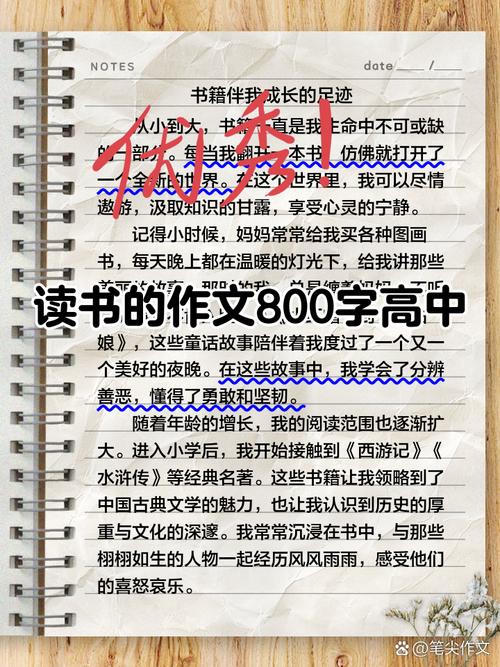 NOTES
date / 
书籍伴我成长的足迹
从小到大，书籍一直是我生命中不可或缺
的一部分。每当我翻开一本书，仿佛就打开了
一个全新的世界。在这个世界里，我可以尽情
遨游，汲取知识的甘露，享受心灵的宁静。
优秀！
记得小时候，妈妈常常给我买各种图画
书，每天晚上都在温暖的灯光下，给我讲那些
的故事。那时的我，总是缠着妈妈
读书的作文800字高中
娘》，这些童话故事陪伴着我度过了一个又一
个美好的夜晚。在这些故事中，我学会了分辨
善恶，懂得了勇敢和坚韧。
随着年龄的增长，我的阅读范围也逐渐扩
大。进入小学后，我开始接触到《西游记》《
水浒传》等经典名著。这些书籍让我领略到了
中国古典文学的魅力，也让我认识到历史的厚
重与文化的深邃。我常常沉浸在书中，与那些
栩栩如生的人物一起经历风风雨雨，感受他们
的喜怒哀乐。
@笔尖作文